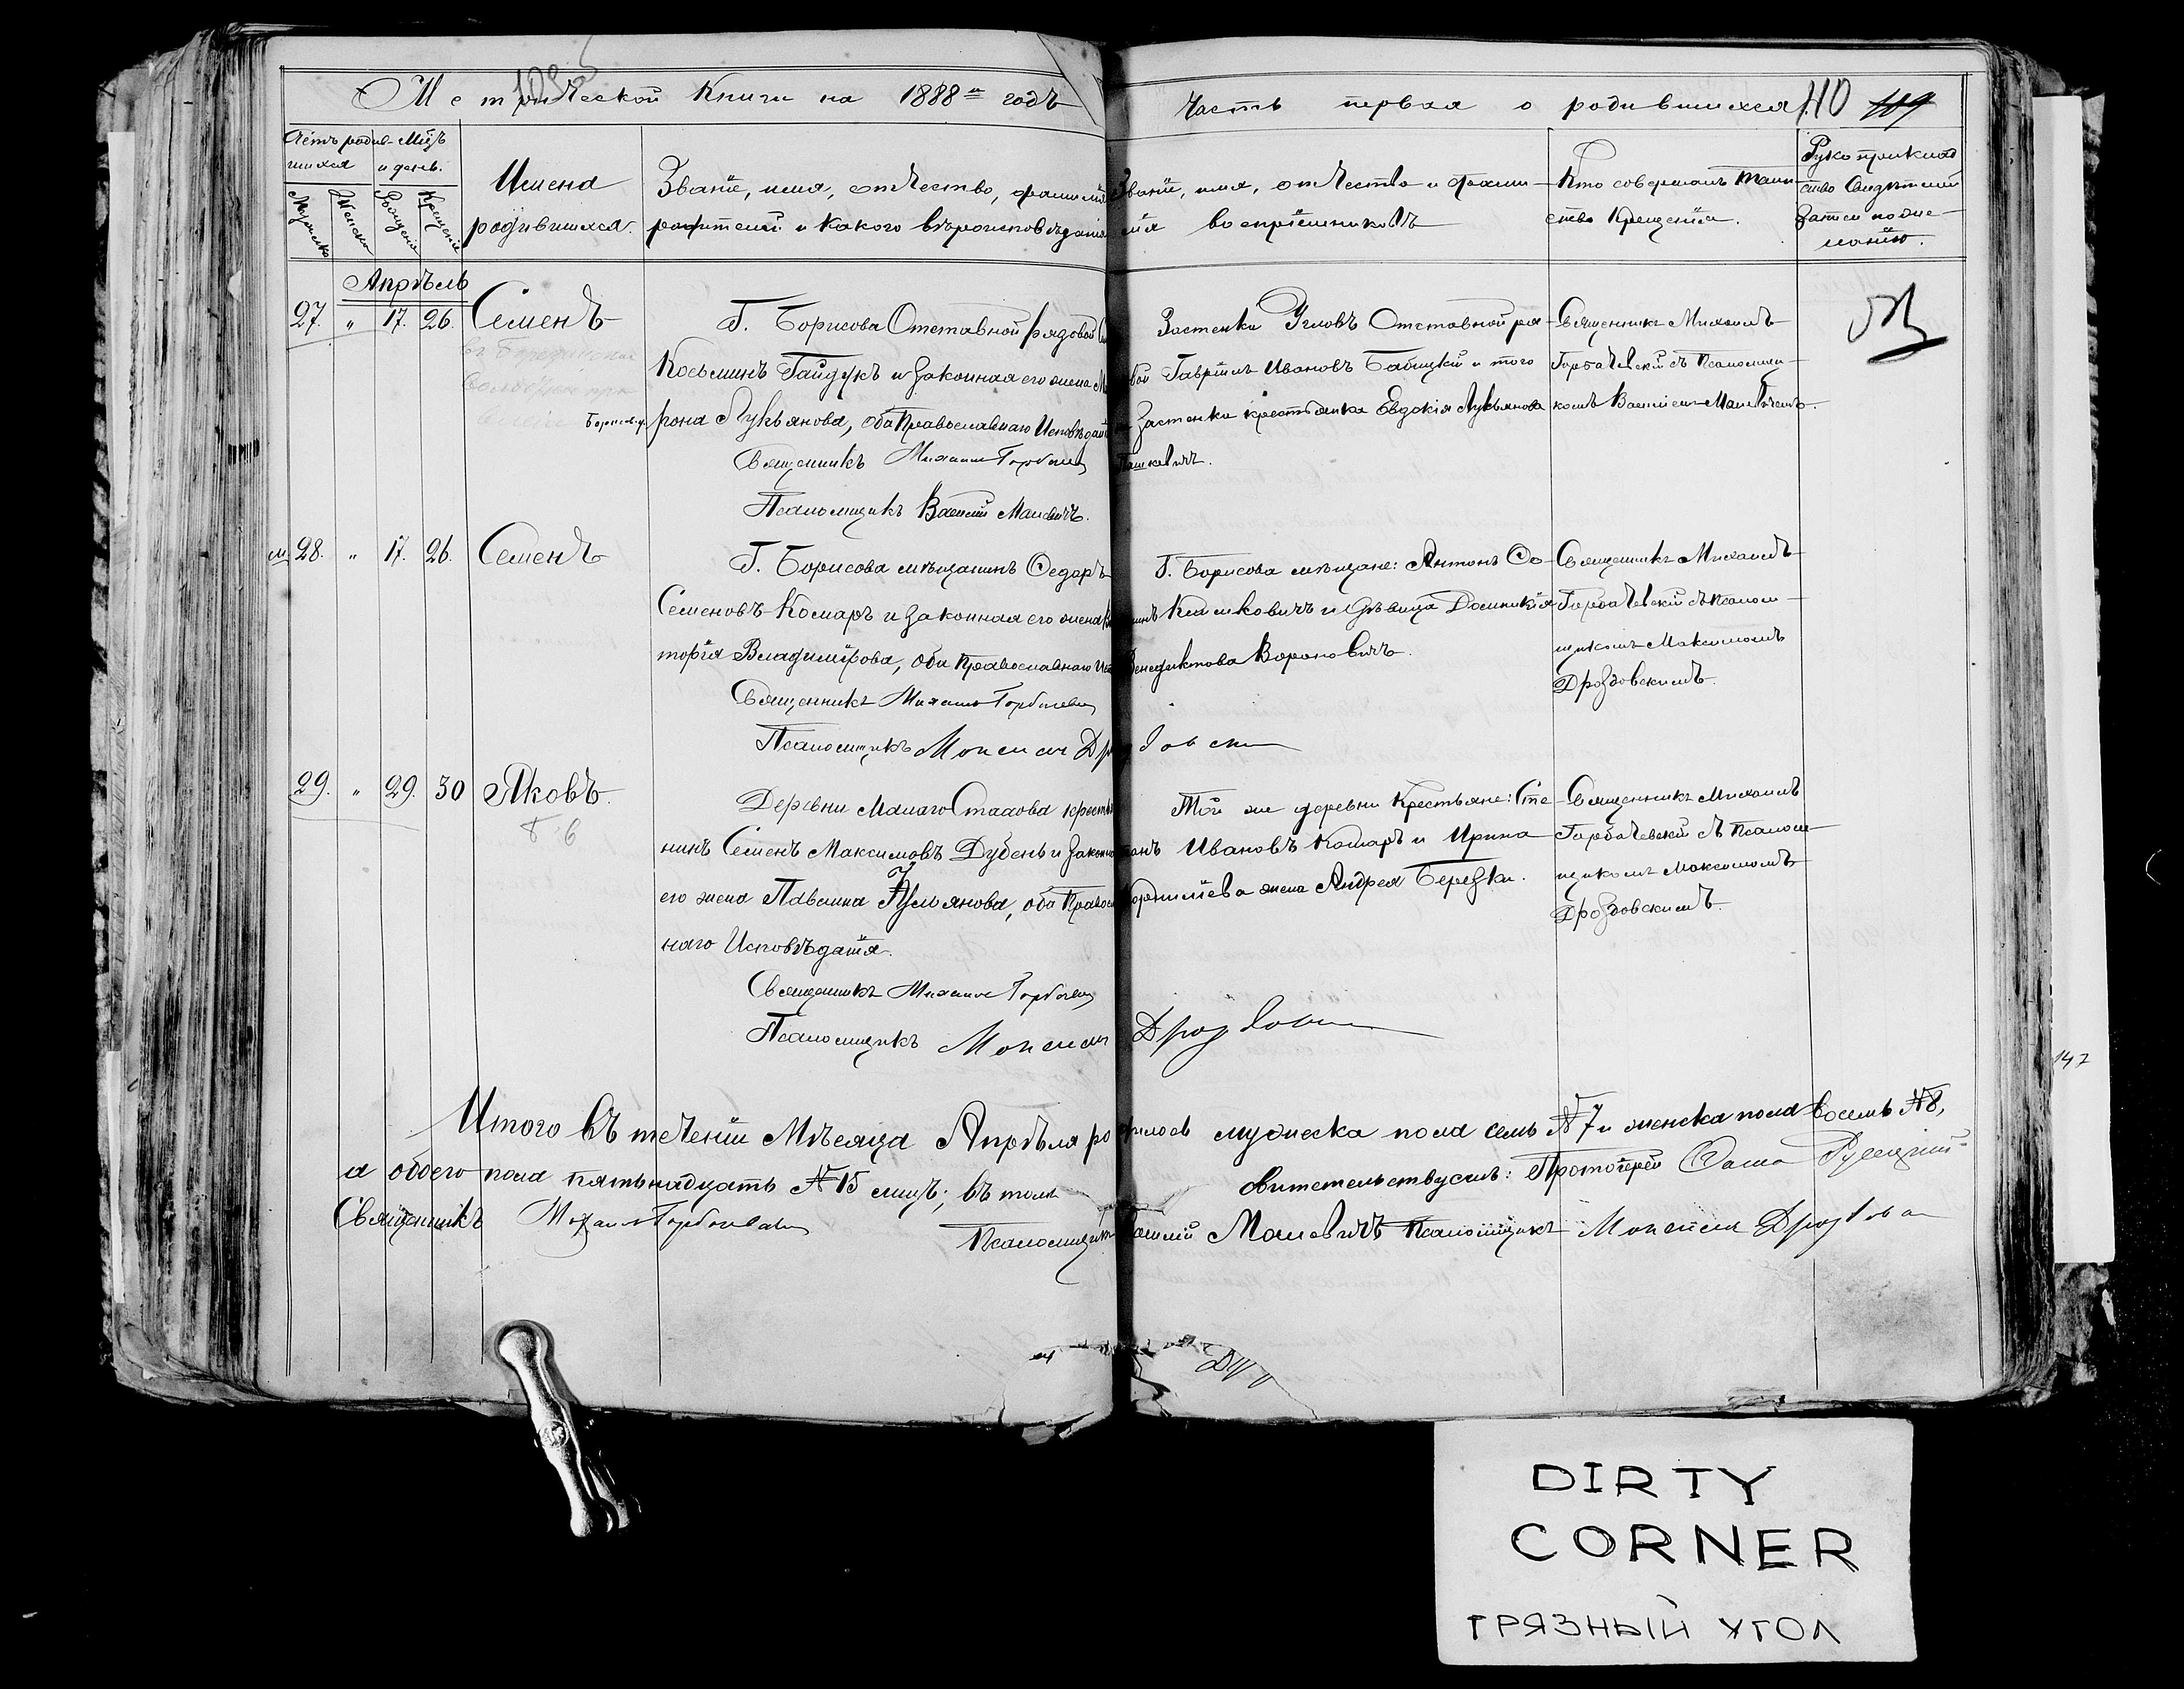 Метрической Книги на 1888й годъ
Часть первая о родившихся
110 109
Счетъ родив-
шихся
Мѣцъ
и день.
Мужеска
Женска
Рожденія
Крещенія
Имена
родившихся.
Званіе, имя, отчество, фамилія
родителей и какого вѣроисповѣданія
Званіе, имя, отчество и фами-
лія воспріемниковъ
Кто совершалъ таин-
ство Крещенія.
Рукоприклад
ство Свидѣтелей
записи по же-
ланію.
Апрѣль
27. " 17. 26. Семенъ
Г. Борисова Отставной рядовой
Косьминъ Гайдукъ и законная его жена М
рона Лукьянова, оба Православнаго Исповѣданія
Священникъ Михаилъ Горбачев
Псаломщикъ Василій Малевичъ.
Застенка Угловъ Отставной ря-
вой Гавріилъ Ивановъ Бабицкій и того
Застенка крестьянка Евдокія Лукьянова
Пашкевичъ.
Священникъ Михаилъ
Горбачевскій съ Псаломщи-
комъ Василіемъ Малевичемъ.
28. " 17. 26. Семенъ
Г. Борисова мѣщанинъ Ѳедоръ
Семеновъ Комаръ и законная его жена Вик
торія Владимірова, оба Православнаго Исп
Священникъ Михаилъ Горбачев
Псаломщикъ Максим Дроздовски
Г. Борисова мѣщане: Антонъ Ѳо-
минъ Климковичъ и дѣвица Доминикія
Венедиктова Вороновичъ.
Священникъ Михаилъ
Горбачевскій съ Псалом-
щикомъ Максимомъ
Дроздовскимъ.
29. " 29. 30 Яковъ.
Деревни Малаго Стахова кресть
нинъ Семенъ Максимовъ Дубень и законная
его жена Павлина Ульянова, оба Правосл
наго Исповѣданія.
Священникъ Михаилъ Горбачев
Псаломщикъ Максим Дроздовски
Той же деревни Крестьяне: Сте-
панъ Ивановъ Комаръ и Ирина
Гордѣева жена Андрея Березки.
Священникъ Михаилъ
Горбачевскій съ Псалом-
щикомъ Максимомъ
Дроздовскимъ.
Итого въ теченіи Мѣсяца Апрѣля родилось мужеска пола семь № 7 и женска пола восемь № 8,
а обоего пола пятьнадцать № 15 лицъ; въ томъ
свитетельствуемъ: Протоіерей
Священникъ Михаил Горбачевск
Псаломщикъ Василій Малевичъ Псаломщикъ Максим Дроздов
147
DIRTY
CORNER
ГРЯЗНЫЙ УГОЛ